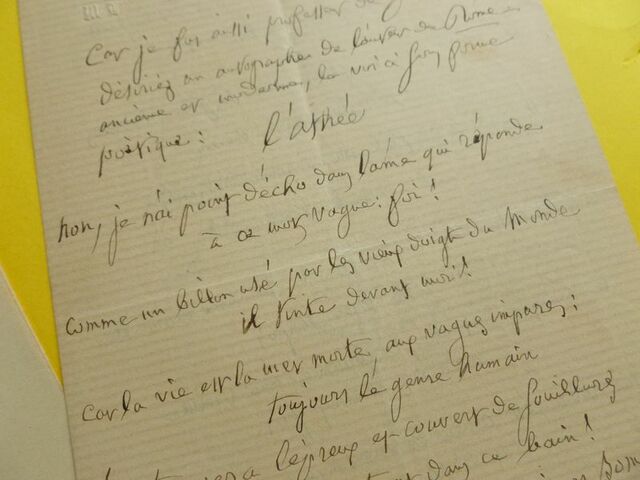 Car je fus aussi professeur de
désiriez un autographe de l'auteur de Rome
ancienne et moderne, la voici à forme
poétique :
l'athée
Non, je n'ai point d'écho dans l'âme qui réponde
à ce mot vague : foi !
Comme un billon usé par les vieux doigts du Monde
il tinte devant moi !
Car la vie est la mer morte, aux vagues impures ;
toujours le genre humain
lépreux et couvert de souillures
dans ce bain !